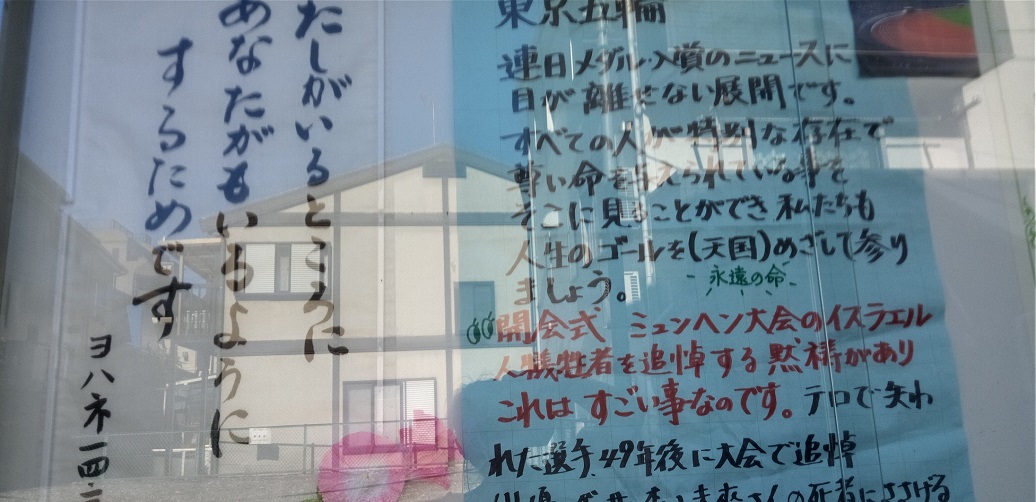 たしがいるところに
あなたがもいるようには
するためです
ヨハネ一四・
東京五輪
連日メダル入賞のニュースに
目が離せない展開です。
すべての人が特別な存在で
尊い命を与えられている事を
そこに見ることができ私たちも
人生のゴールを(天国)めざして参り
永遠の命
ましょう。
開会式 ミュンヘン大会のイスラエル
人犠牲者を追悼する黙祷があり
これは すごい事なのです。テロで失わ
れた選手、49年後に大会で追悼
さんの死者にささげる